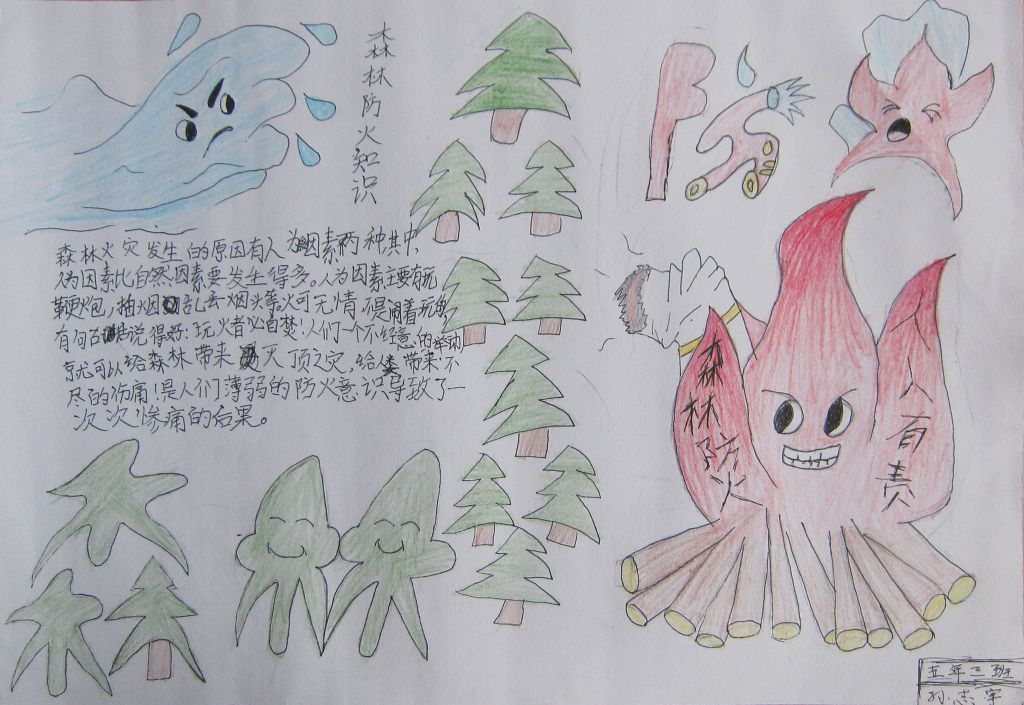 森林防火知识
森林火灾发生的原因有人为因素两种其中,
人为因素比自然因素要发生得多。人为因素主要有玩
鞭炮,抽烟乱丢烟头等火可无情,不是闹着玩的
有句古话说得好:玩火者必自焚!人们一个不经意的举动
就可以给森林带来灭顶之灾,给人类带来不
尽的伤痛!是人们薄弱的防火意识导致了一
次次惨痛的后果。
森林防火
人人有责
五年三班
孙志宇